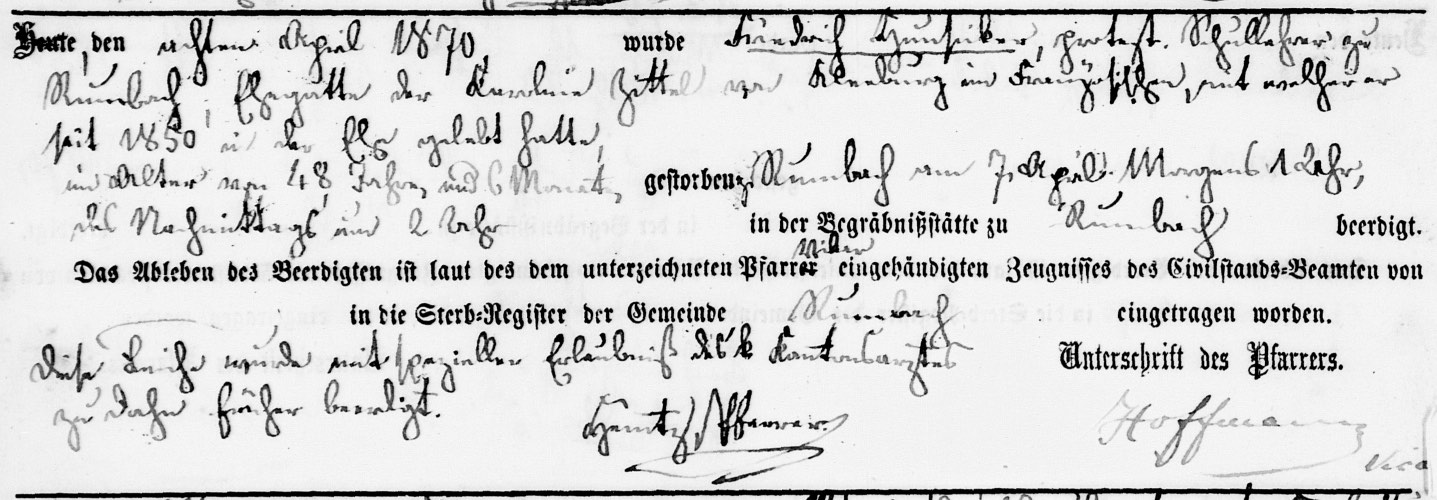 Heute, den achten April 1870, wurde Friedrich Hunsicker, protest. Schullehrer zu
Rumbach, Ehegatte der Karoline Zittel von Kleeburg im Französischen, mit welcher er
seit 1850 in der Ehe gelebt hatte,
im Alter von 48 Jahren und 6 Monaten gestorben zu Rumbach am 7. April Morgens 1 Uhr,
des Nachmittags um 2 Uhr in der Begräbnißstätte zu Rumbach beerdigt.
Vikar
Das Ableben des Beerdigten ist laut des dem unterzeichneten Pfarrer eingehändigten Zeugnisses des Civilstands-Beamten von
in die Sterb-Register der Gemeinde Rumbach eingetragen worden.
Diese Leiche wurde mit spezieller Erlaubniß des k Kantonsarztes Unterschrift des Pfarrers.
zu Dahn früher beerdigt.
Pfarrer Hoffmann